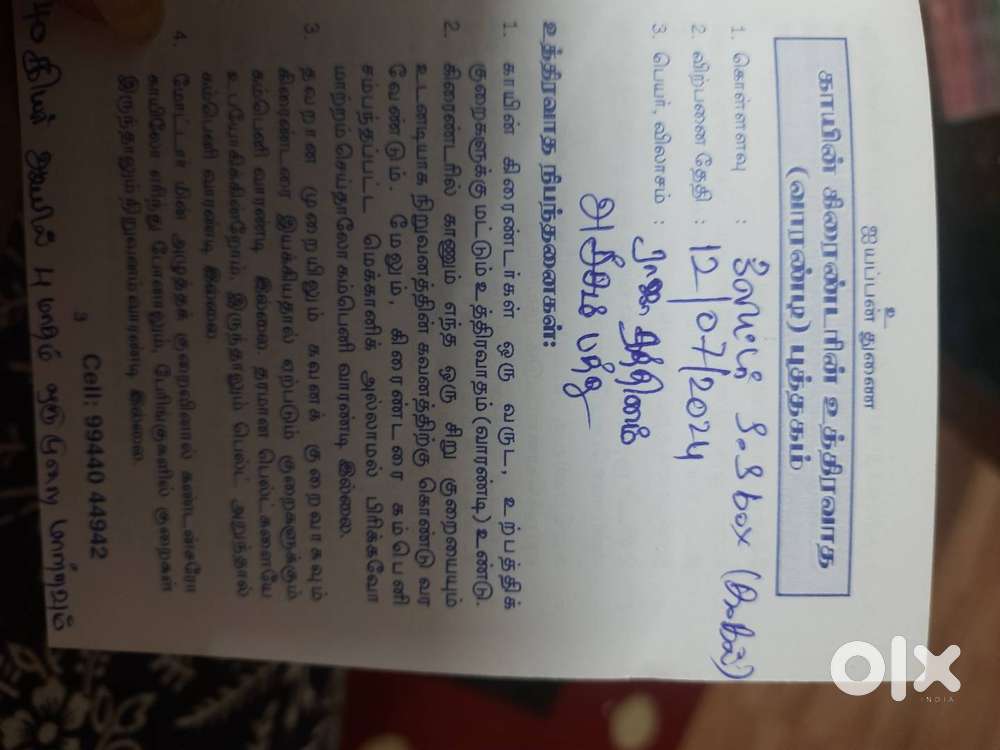 உ
ஐயப்பன் துணை
காயின் கிரைண்டரின் உத்திரவாத
(வாரண்டி) புத்தகம்
1. கொள்ளளவு :
S.S box
2. விற்பனை தேதி : 12/07/2024
3. பெயர், விலாசம் : ராஜ ரத்தினம்
உத்திரவாத நிபந்தனைகள்:
1. காயின் கிரைண்டர்கள் ஒரு வருட, உற்பத்திக்
குறைகளுக்கு மட்டும் உத்திரவாதம் (வாரண்டி) உண்டு.
2. கிரைண்டரில் காணும் எந்த ஒரு சிறு குறையையும்
உடனடியாக நிறுவனத்தின் கவனத்திற்கு கொண்டு வர
வேண்டும். மேலும், கிரைண்டரை கம்பெனி
சம்பந்தப்பட்ட மெக்கானிக் அல்லாமல் பிரிக்கவோ
மாற்றம் செய்தாலோ கம்பெனி வாரண்டி இல்லை.
3. தவறான முறையிலும் கவனக் குறைவாகவும்
கிரைண்டரை இயக்கியதால் ஏற்படும் குறைகளுக்கும்
கம்பெனி வாரண்டி இல்லை. தரமான பெல்ட்களையே
உபயோகிக்கின்றோம். இருந்தாலும் பெல்ட் அறுந்தால்
கம்பெனி வாரண்டி இல்லை.
4. மோட்டார் மின் அழுத்தக் குறைவினால் கண்டன்சரோ
காயிலோ எரிந்து போனாலும், பேரிங்குகளில் குறைகள்
இருந்தாலும் நிறுவனம் வாரண்டி இல்லை.
3
Cell: 99440 44942
olx
INDIA